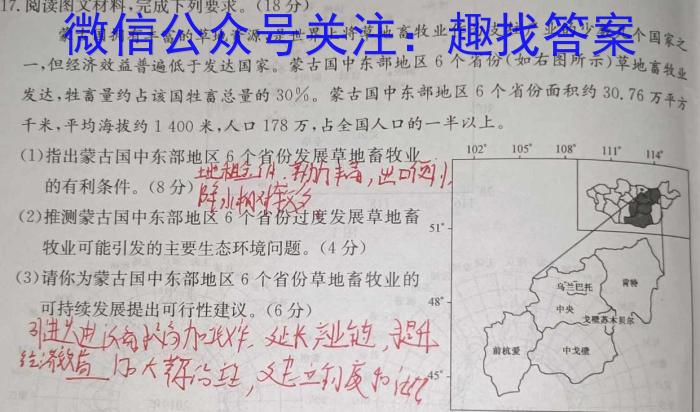 17.阅读图文材料,完成下列要求。(18分)
微信公众号关注：趣找答案
一,但经济效益普遍低于发达国家。蒙古国中东部地区6个省份(如右图所示)草地畜牧业
发达,牲畜量约占该国牲畜总量的30%。蒙古国中东部地区6个省份面积约30.76万平方
千米,平均海拔约1 400米,人口178万,占全国人口的一半以上。
(1)指出蒙古国中东部地区6个省份发展草地畜牧业
的有利条件。(8分)
降水相对较多
(2)推测蒙古国中东部地区6个省份过度发展草地畜
牧业可能引发的主要生态环境问题。(4分)
(3)请你为蒙古国中东部地区6个省份草地畜牧业的
可持续发展提出可行性建议。(6分)
延长产业链,提升
经济效益
102° 105° 108° 111° 114°
51°
48°
45°
乌兰巴托
肯特
中央
戈壁苏木贝尔
前杭爱
中戈壁